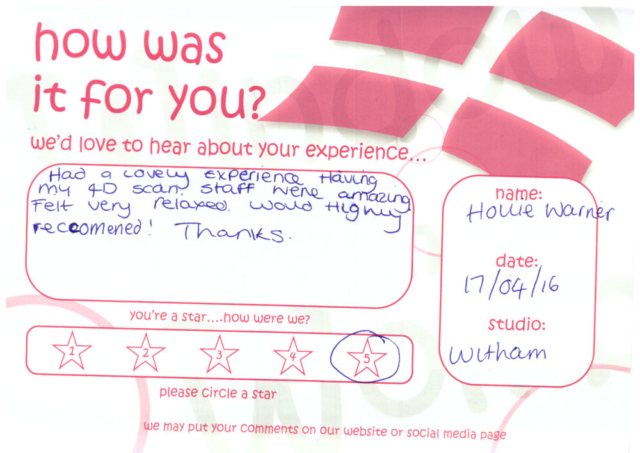 how was
it for you?
we'd love to hear about your experience...
Had a lovely experience Having
my 4D scan. Staff were amazing
Felt very relaxed. Would Highly
reccomened! Thanks.
name:
Hollie Warner
date:
17/04/16
studio:
Witham
you're a star....how were we?
1 2 3 4 5
please circle a star
we may put your comments on our website or social media page